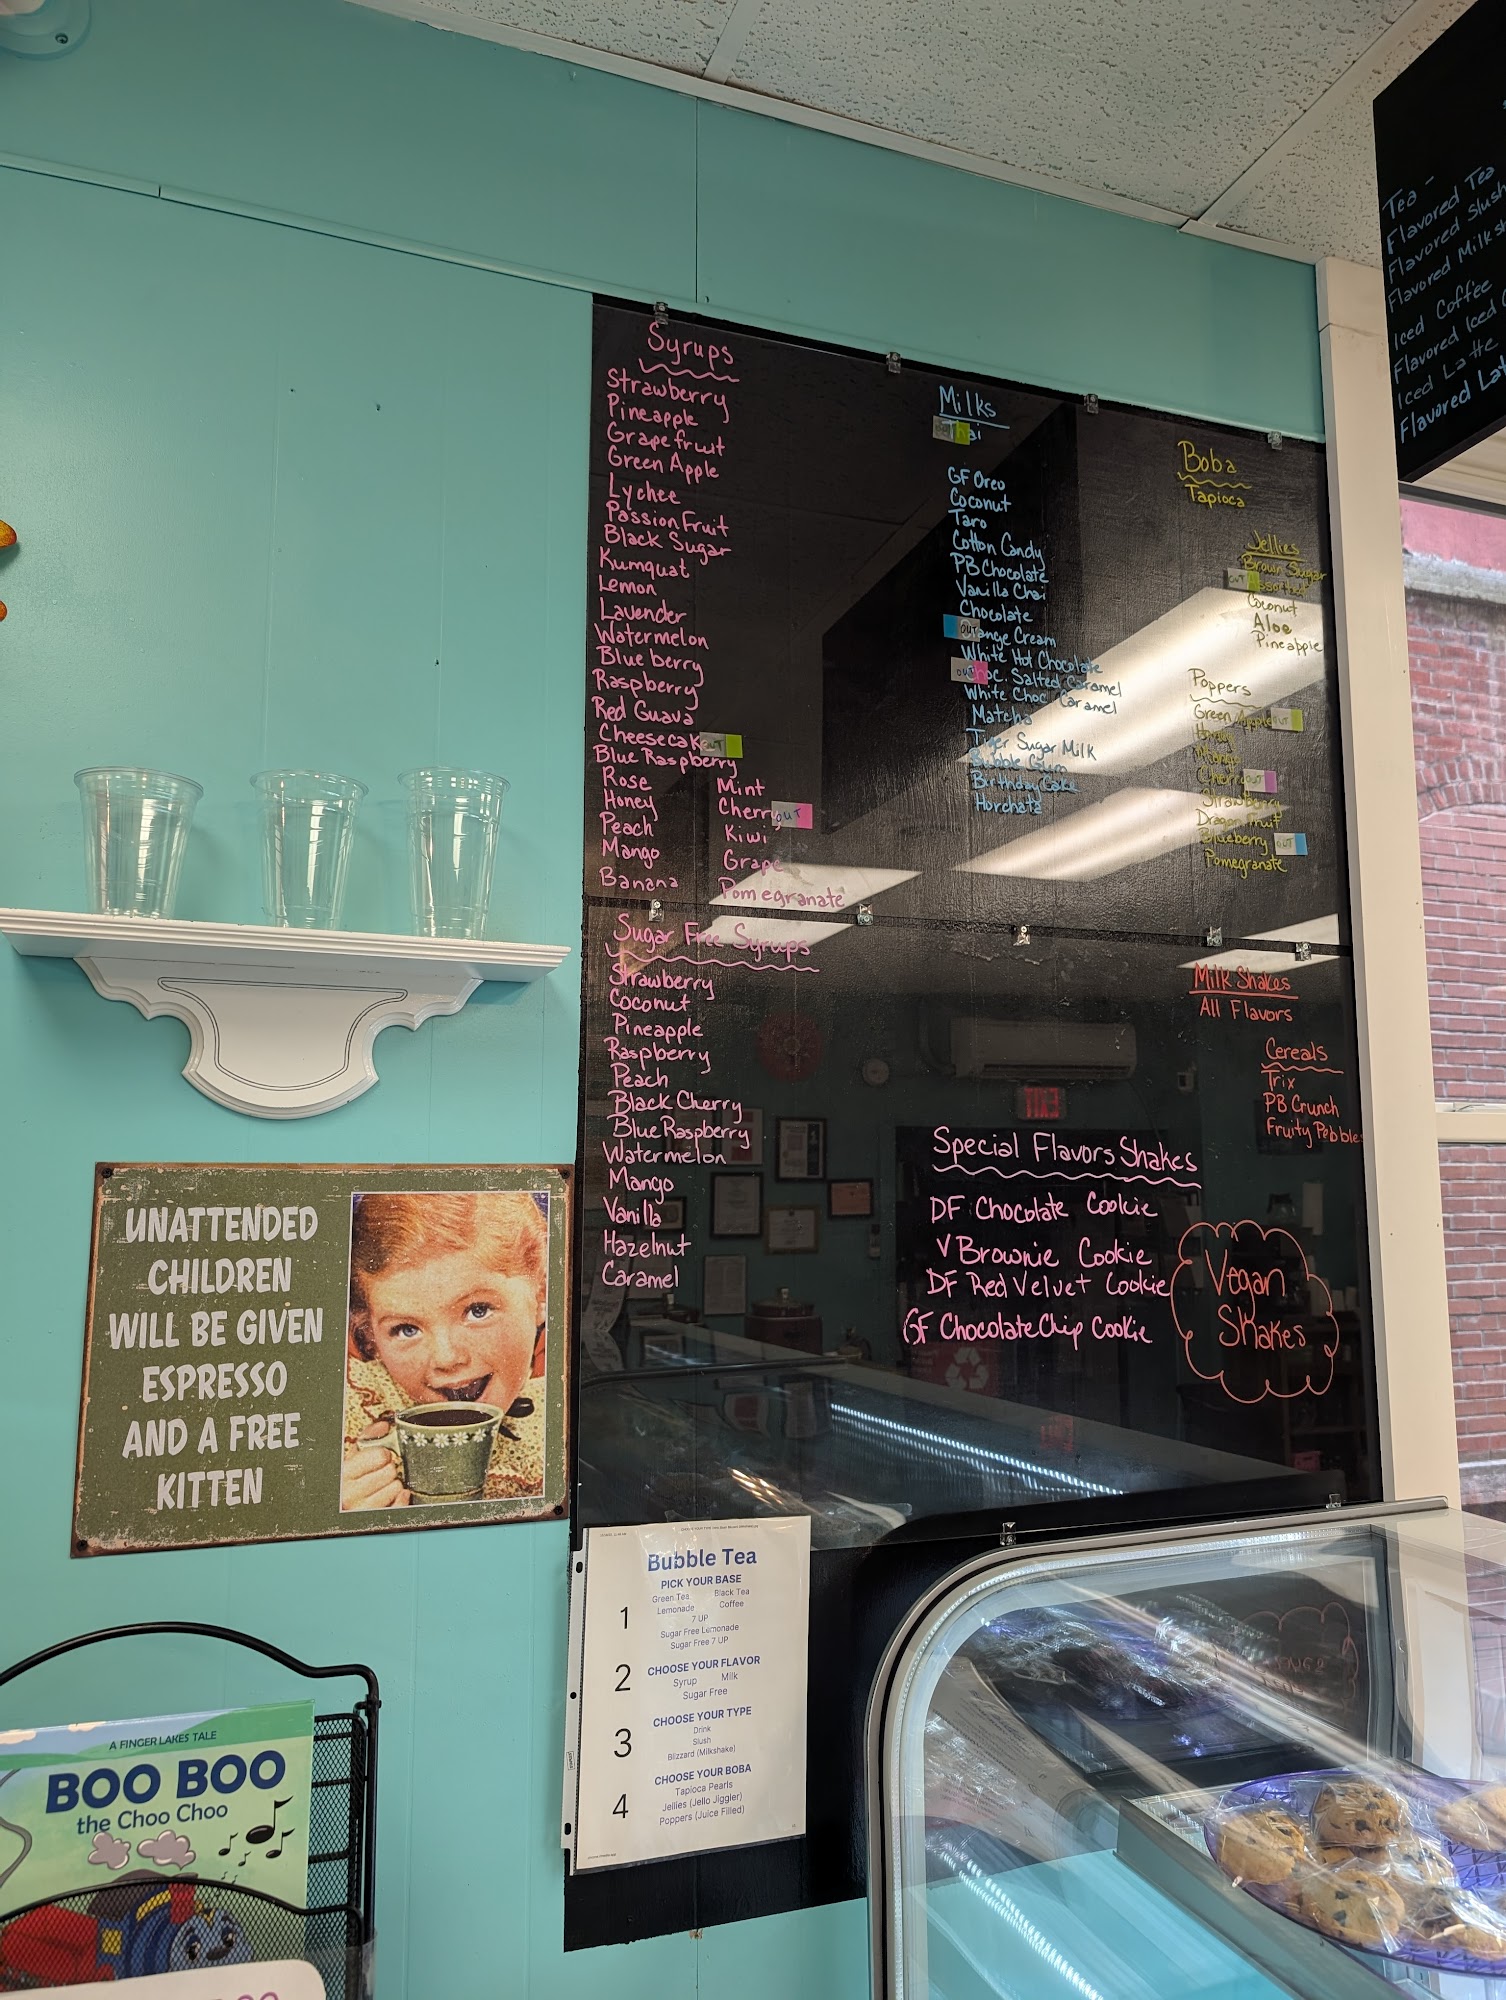 Syrups
Strawberry
Pineapple
Grapefruit
Green Apple
Lychee
Passion Fruit
Black Sugar
Kumquat
Lemon
Lavender
Watermelon
Blueberry
Raspberry
Red Guava
Cheesecake OUT
Blue Raspberry
Rose
Honey
Peach
Mango
Banana
Mint
Cherry OUT
Kiwi
Grape
Pomegranate
Milks
Thai
GF Oreo
Coconut
Taro
Cotton Candy
PB Chocolate
Vanilla Chai
Chocolate
OUT Orange Cream
White Hot Chocolate
OUT Choc. Salted Caramel
White Choc Caramel
Matcha
Tiger Sugar Milk
Bubble Gum
Birthday Cake
Horchata
Boba
Tapioca
Jellies
Brown Sugar
OUT Assorted
Coconut
Aloe
Pineapple
Poppers
Green Apple OUT
Honey
Mango
Cherry OUT
Strawberry
Dragon Fruit
Blueberry OUT
Pomegranate
Sugar Free Syrups
Strawberry
Coconut
Pineapple
Raspberry
Peach
Black Cherry
Blue Raspberry
Watermelon
Mango
Vanilla
Hazelnut
Caramel
Milk Shakes
All Flavors
Cereals
Trix
PB Crunch
Fruity Pebbles
Special Flavors Shakes
DF Chocolate Cookie
V Brownie Cookie
DF Red Velvet Cookie
GF Chocolate Chip Cookie
Vegan
Shakes
Tea -
Flavored Tea
Flavored Slush
Flavored Milksh
Iced Coffee
Flavored Iced C
Iced Latte
Flavored Lat
UNATTENDED
CHILDREN
WILL BE GIVEN
ESPRESSO
AND A FREE
KITTEN
Bubble Tea
PICK YOUR BASE
1
Green Tea Black Tea
Lemonade Coffee
7 UP
Sugar Free Lemonade
Sugar Free 7 UP
2
CHOOSE YOUR FLAVOR
Syrup Milk
Sugar Free
3
CHOOSE YOUR TYPE
Drink
Slush
Blizzard (Milkshake)
4
CHOOSE YOUR BOBA
Tapioca Pearls
Jellies (Jello Jiggler)
Poppers (Juice Filled)
A FINGER LAKES TALE
BOO BOO
the Choo Choo
EXIT